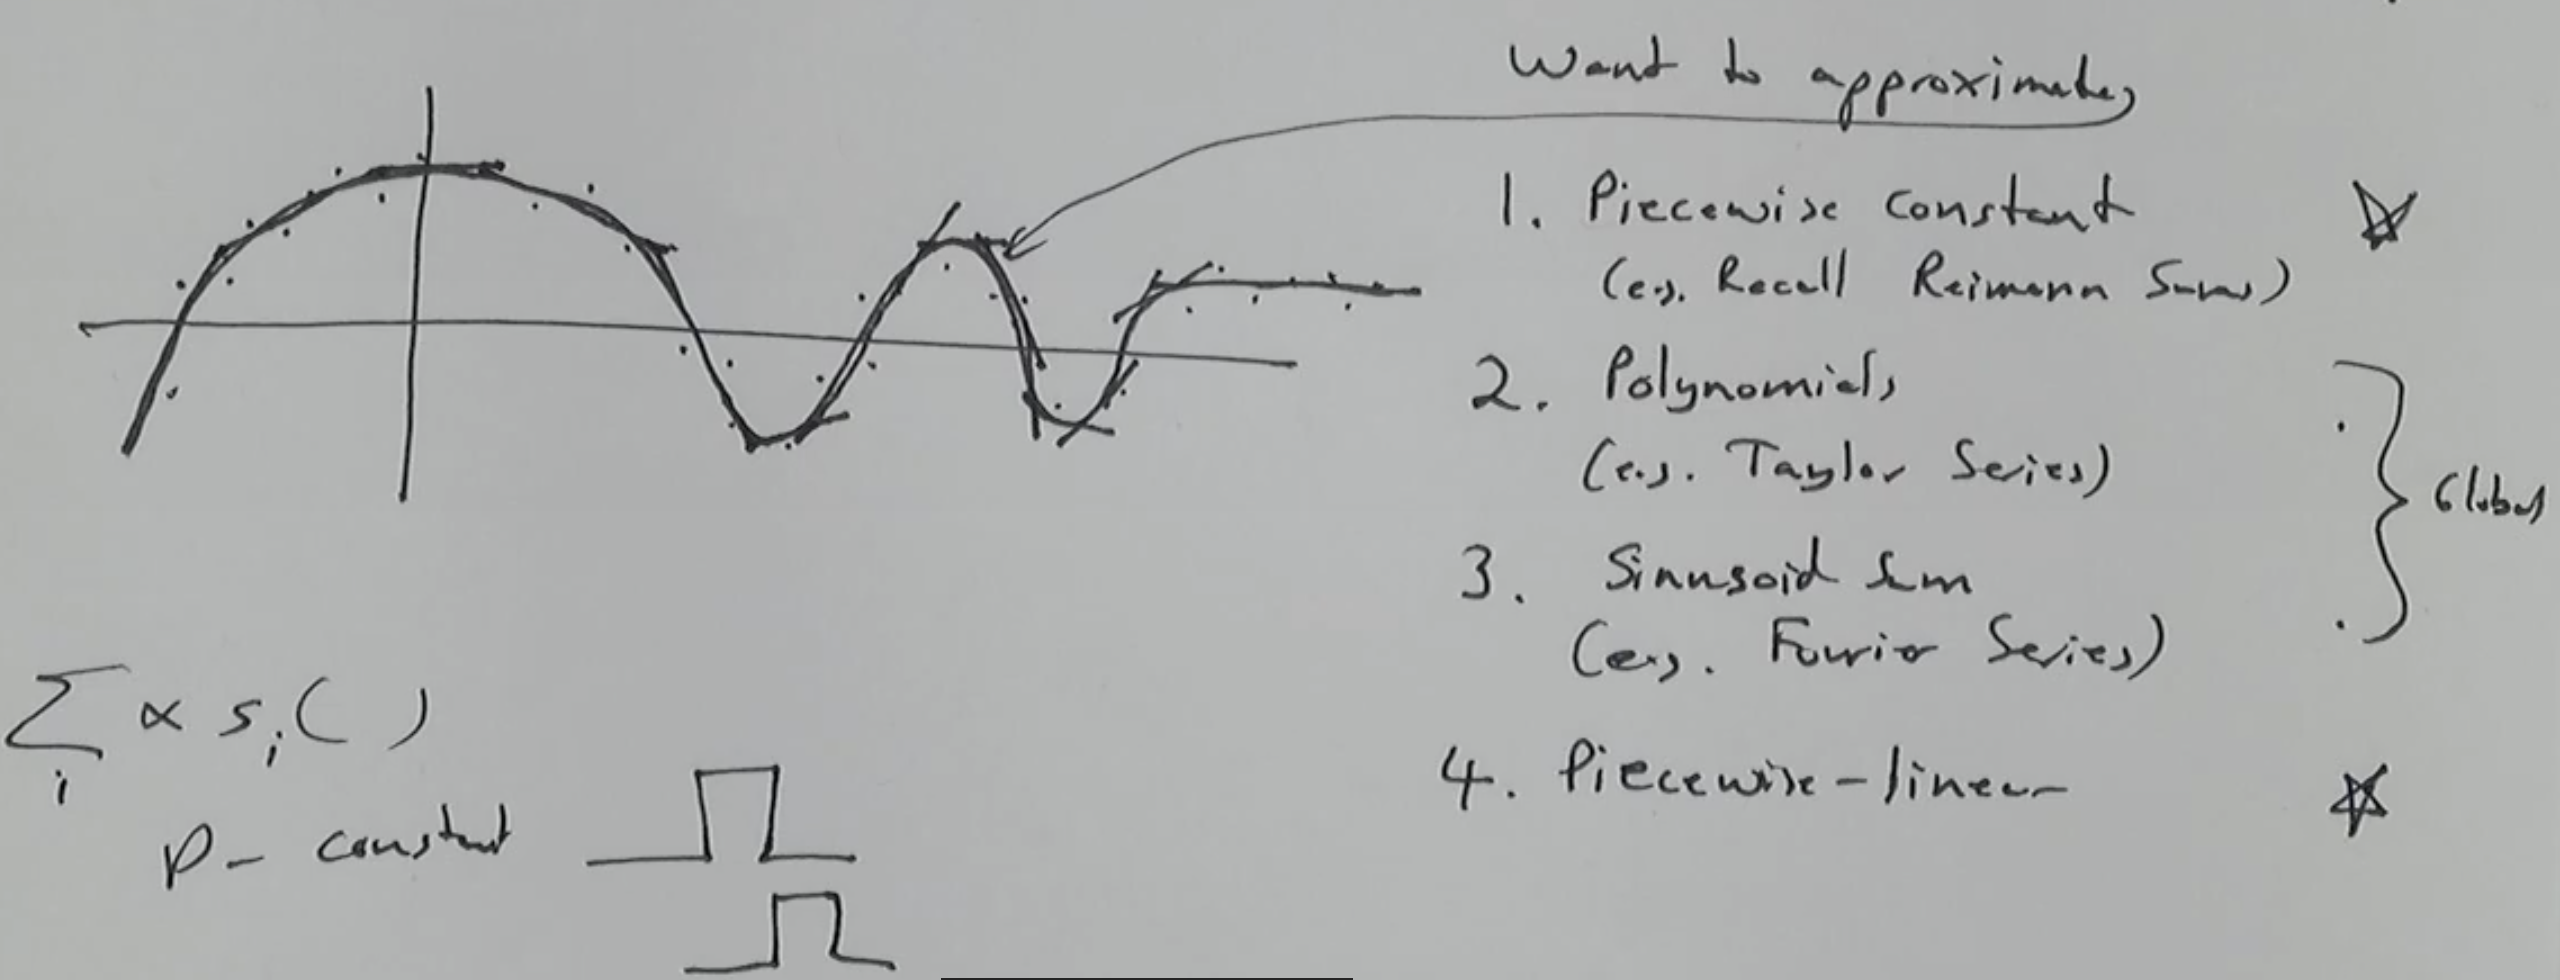 Want to approximate,
1. Piecewise constant
(e.g. Recall Reimann Sums)
2. Polynomials
(e.g. Taylor Series)
Global
3. Sinusoid Sum
(e.g. Fourier Series)
4. Piecewise-linear
∑ ∝ s_i( )
i
P- constant